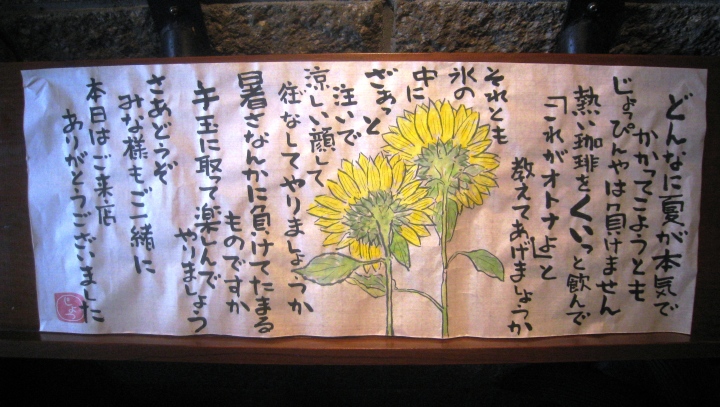 どんなに夏が本気で
かかってこようとも
じょっぴんやは負けません
熱い珈琲をくいっと飲んで
「これがオトナよ」と
教えてあげましょうか
それとも
氷の
中に
ざぁっと
注いで
涼しい顔して
往なしてやりましょうか
暑さなんかに負けてたまる
ものですか
手玉に取て楽しんで
やりましょう
さあどうぞ
みな様もご一緒に
本日はご来店
ありがとうございました
じょう